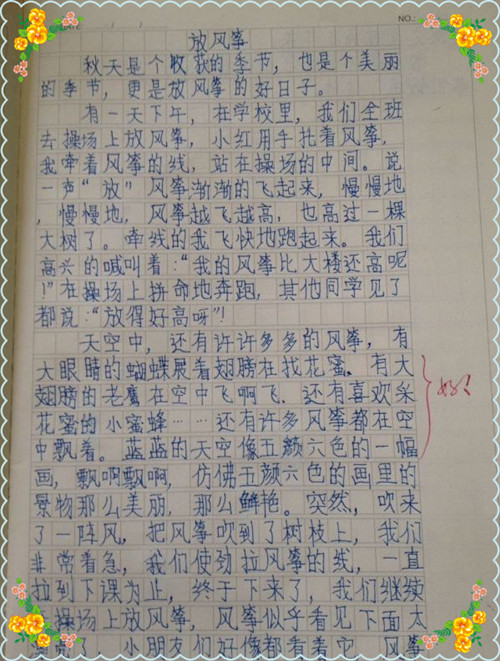 NO.:
放风筝
秋天是个收获的季节，也是个美丽
的季节，更是放风筝的好日子。
有一天下午，在学校里，我们全班
去操场上放风筝，小红用手托着风筝，
我牵着风筝的线，站在操场的中间。说
一声“放”风筝渐渐的飞起来，慢慢地
，慢慢地，风筝越飞越高，也高过一棵
大树了。牵线的我飞快地跑起来。我们
高兴的喊叫着：“我的风筝比大楼还高呢
！”在操场上拼命地奔跑，其他同学见了
都说：“放得好高呀”！
天空中，还有许许多多的风筝，有
大眼睛的蝴蝶展着翅膀在找花蜜。有大
翅膀的老鹰在空中飞啊飞.还有喜欢采
花蜜的小蜜蜂……还有许多风筝都在空
中飘着。蓝蓝的天空像五颜六色的一幅
好！
画，飘啊飘啊，仿佛五颜六色的画里的
景物那么美丽，那么鲜艳。突然，吹来
了一阵风，把风筝吹到了树枝上，我们
非常着急，我们使劲拉风筝的线，一直
拉到下课为止，终于下来了，我们继续
操场上放风筝，风筝似乎看见下面太
了，小朋友们好像都看着它，风筝